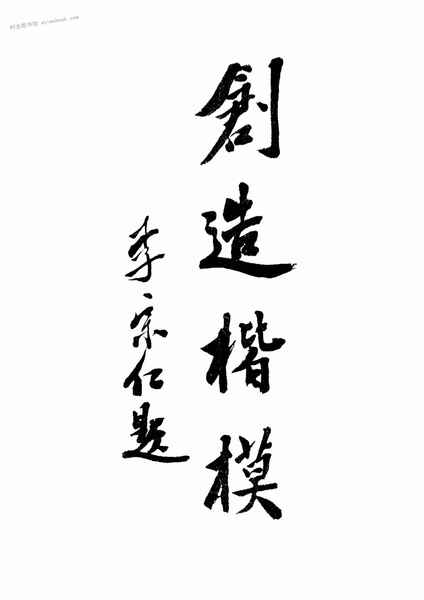 創造楷模
李宗仁題